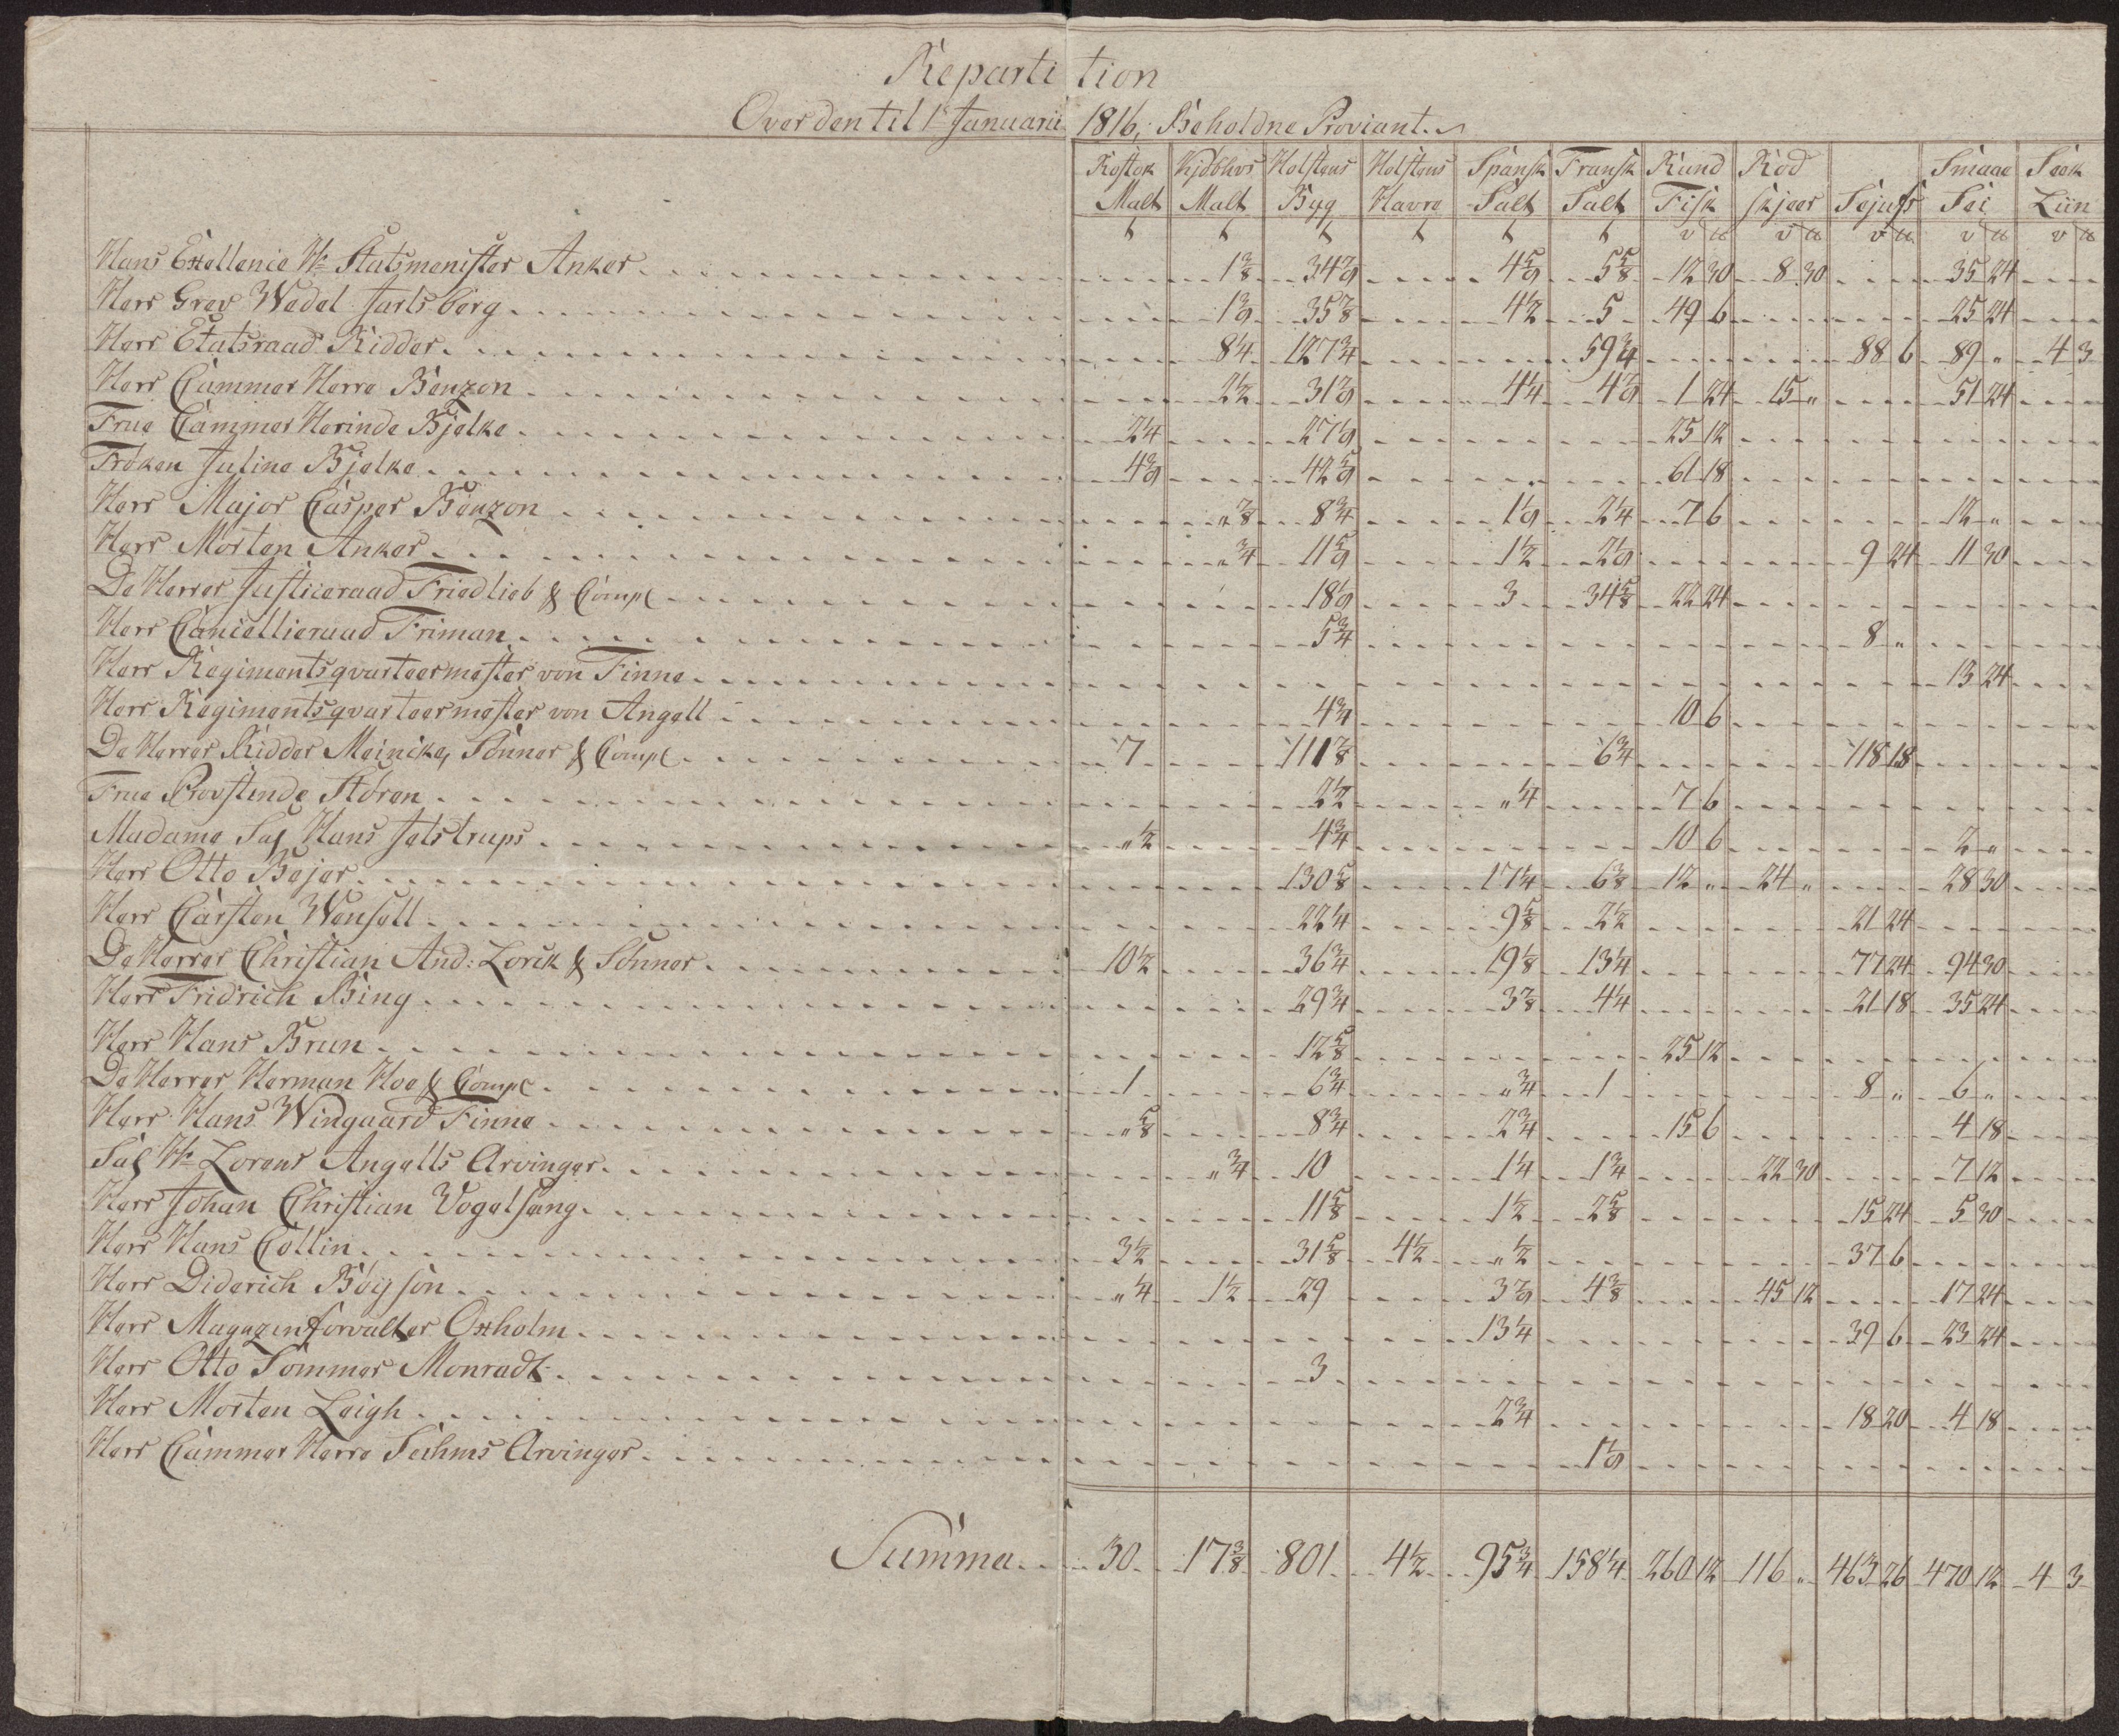 Repartition
Over den til 1ste Januarii 1816, Beholdne Proviant.
Rostok Malt | Kjöbhvs Malt | Holstens Byg | Holstens Havre | Spansk Salt | Fransk Salt | Rund Fisk | Röd skjær | Sejufs | Smaae Sei | Seek Liin
Hans Exellence Hr Statsmenister Anker 1 3/8 34 7/9 4 5/9 5 5/8 12 30 8 30 35 24
Herr Grev Wedel Jarlsberg 35 7/8 4 1/2 5 49 6 25 24
Herr Etatsraad Ridder 8 1/4 127 3/4 59 3/4 88 6 89 " 4 3
Herr Cammer Herre Benzon 2 1/2 4 1/4 1 24 15 " 51 24
Frue Cammer Herinde Bjelke 2 1/4 27 1/9 25 12
Fröken Juline Bjelke 42 5/9 61 18
Herr Major Casper Benzon " 7/8 8 3/4 1 1/9 2 1/4 7 6 12 "
Herr Morten Anker " 3/4 11 5/9 1 1/2 2 1/9 9 24 11 30
De Herrer Justiceraad Friedlieb & Comp 18 1/9 3 34 5/8 22 24
Herr Cancellieraad Friman 5 3/4 8 "
Herr Regimentsqvarteermester von Finne 13 24
Herr Regimentsqvarteermester von Angell 4 3/4 10 6
De Herrer Ridder Meincke, Sönner & Comp 7 111 7/8 6 3/4 118 18
Frue Provstinde Stören 2 1/2 " 1/4 7 6
Madame Sal Hans Jelstrups " 1/2 4 3/4 10 6 2 "
Herr Otto Bejer 130 5/8 17 1/4 6 3/8 12 " 24 " 28 30
Herr Carsten Wensell 22 1/4 9 5/8 2 1/2 21 24
De Herrer Christian And: Lorck & Sönner 10 1/2 36 3/4 19 1/8 13 1/4 77 24 94 30
Herr Fridrich Bing 29 3/4 3 7/8 4 1/4 21 18 35 24
Herr Hans Brun 12 5/8 25 12
De Herrer Herman Hoe & Comp 1 6 3/4 " 3/4 1 8 " 6 "
Herr Hans Wingaard Finne " 5/8 8 3/4 2 3/4 15 6 4 18
Sal Hr Lorens Angells Arvinger " 3/4 10 1 1/4 1 3/4 22 30 7 12
Herr Johan Christian Vogelsang 11 5/8 1 1/2 2 5/8 15 24 5 30
Herr Hans Collin 3 1/2 31 5/8 4 1/2 " 1/2 37 6
Herr Diderich Böyson " 1/4 1 1/2 29 3 7/9 4 3/8 45 12 17 24
Herr Magazinforvalter Oxholm 13 1/4 39 6 23 24
Herr Otto Sommer Monradt 3
Herr Morten Leigh 2 3/4 18 20 4 18
Herr Cammer Herre Suhms Arvinger 1 1/9
Summa 30 17 3/8 801 4 1/2 95 3/4 158 1/4 260 12 116 " 463 26 470 12 4 3